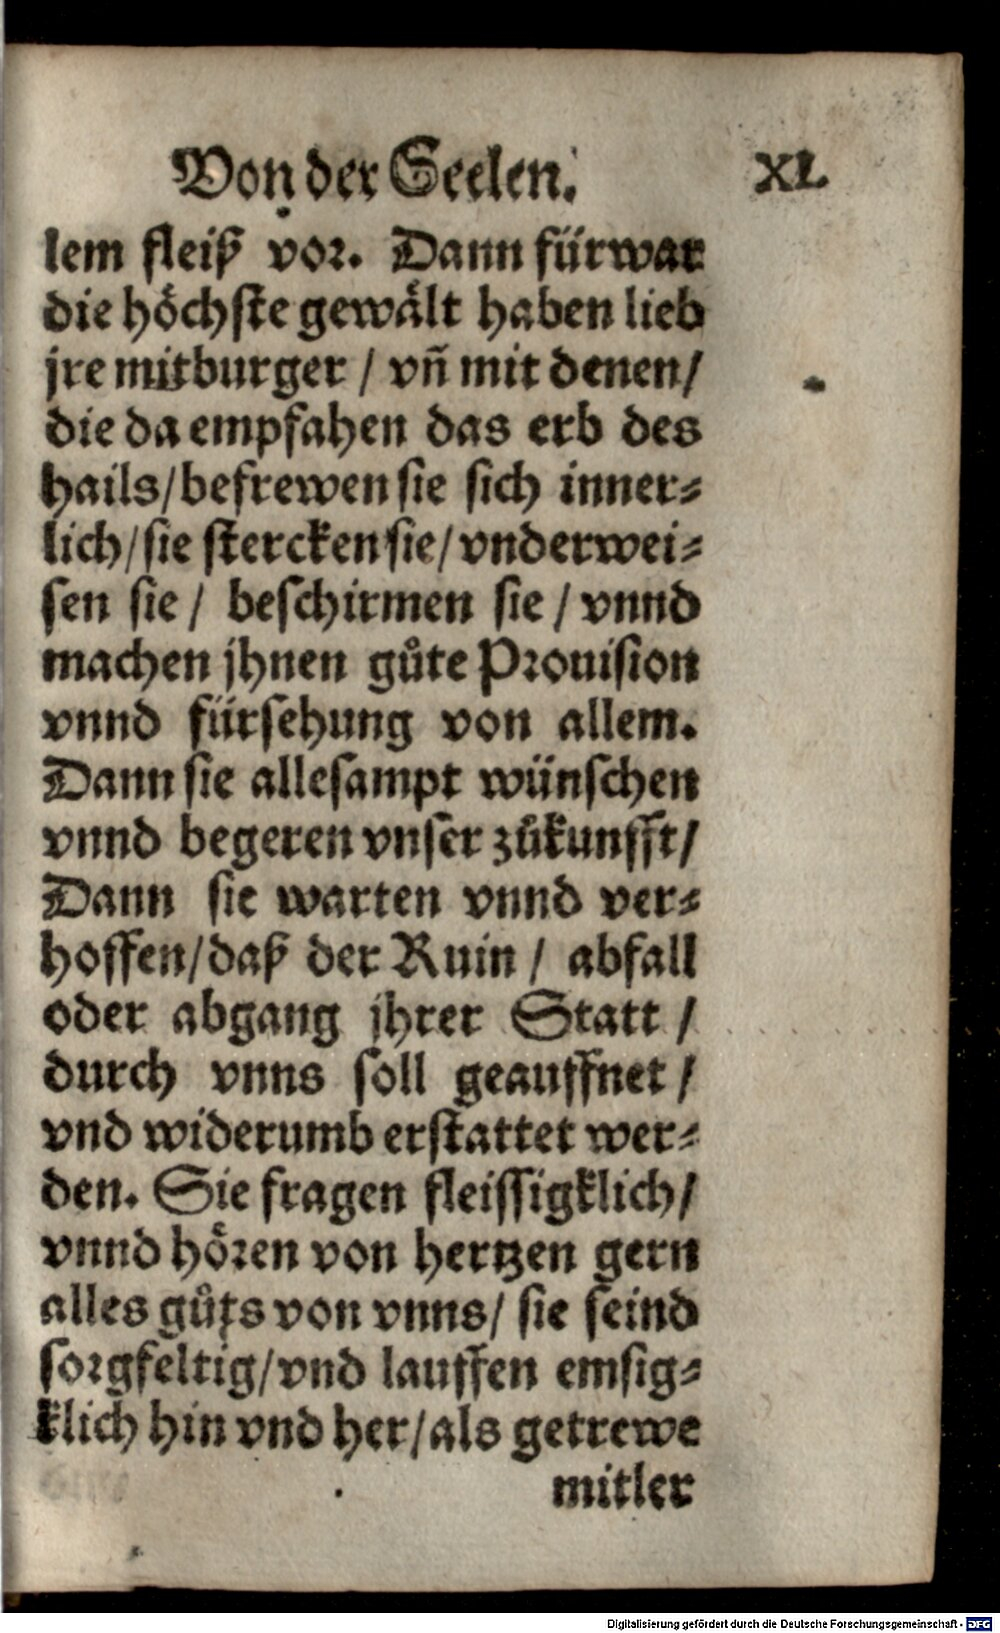 Von der Seelen. XL
lem fleiß vor. Dann fürwar
die hoͤchſte gewaͤlt haben lieb
jre mitburger / vñ mit denen /
die da empfahen das erb des
hails / befrewen ſie ſich inner⸗
lich / ſie ſtercken ſie / vnderwei⸗
ſen ſie / beſchirmen ſie / vnnd
machen jhnen guͦte Prouiſion
vnnd fürſehung von allem.
Dann ſie alleſampt wünſchen
vnnd begeren vnſer zuͦkunfft /
Dann ſie warten vnnd ver⸗
hoffen / daß der Ruin / abfall
oder abgang jhrer Statt /
durch vnns ſoll geauffnet /
vnd widerumb erſtattet wer⸗
den. Sie fragen fleiſſigklich /
vnnd hoͤren von hertzen gern
alles guͦts von vnns / ſie ſeind
ſorgfeltig / vnd lauffen emſig⸗
klich hin vnd her / als getrewe
mitler
Digitalisierung gefördert durch die Deutsche Forschungsgemeinschaft - DFG